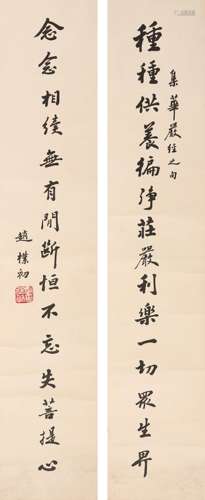 種種供養徧淨莊嚴利樂一切眾生界
集華嚴經之句
念念相續無有閒斷恒不忘失菩提心
趙樸初